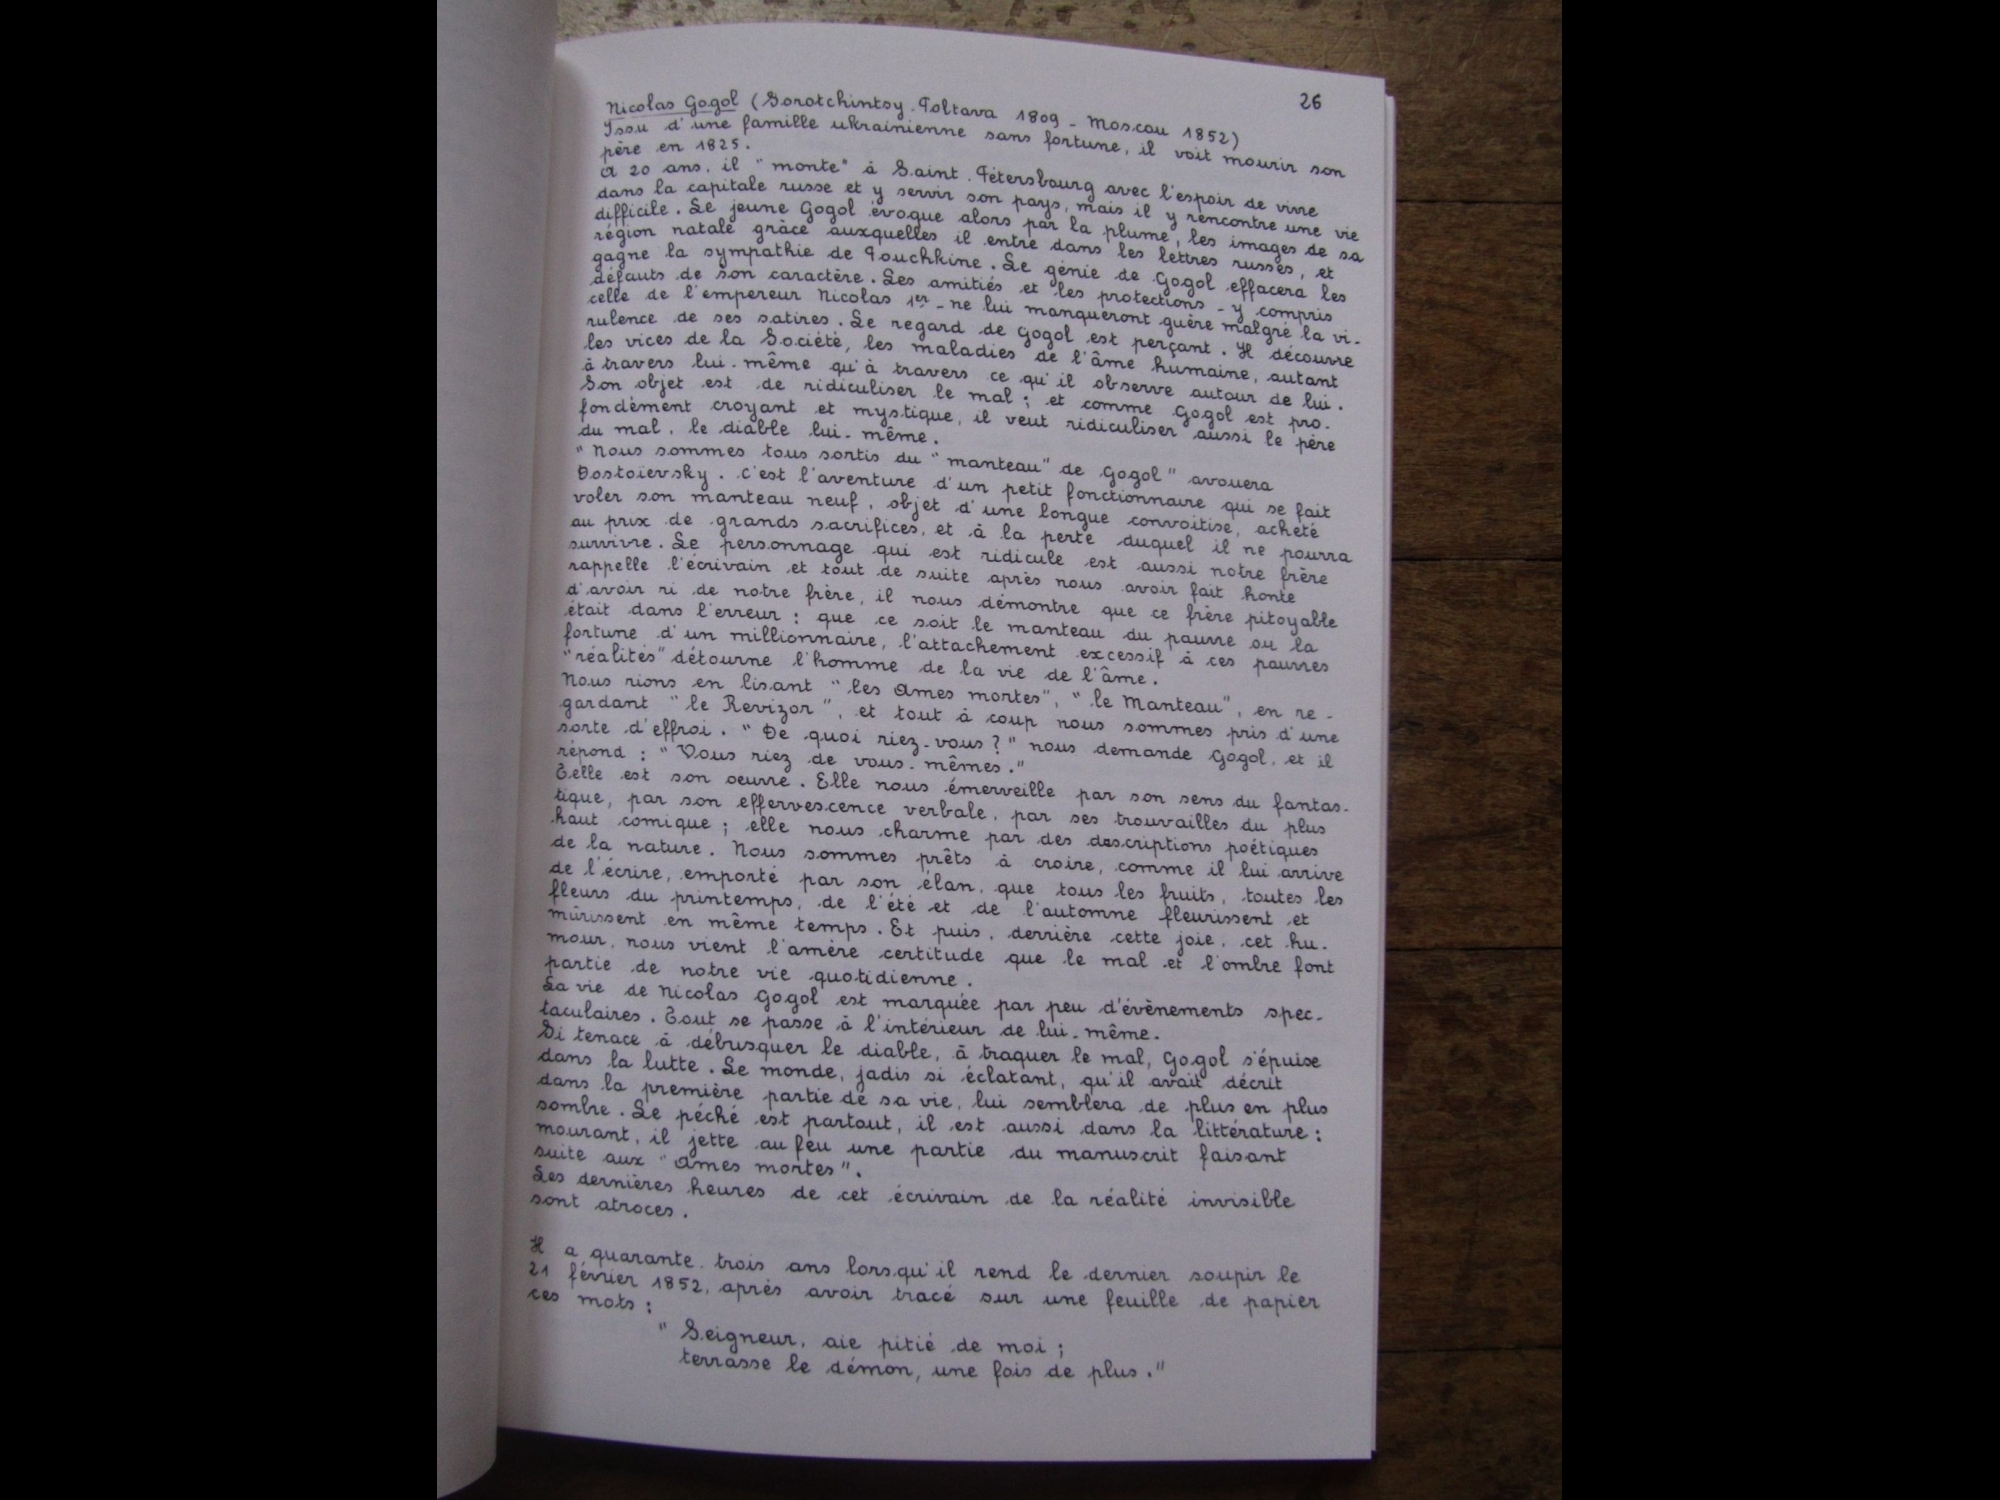 26
Nicolas Gogol (Sorotchintsy. Poltava 1809 - Moscou 1852)
Issu d'une famille ukrainienne sans fortune, il voit mourir son
père en 1825.
A 20 ans, il "monte" à Saint. Pétersbourg avec l'espoir de vivre
dans la capitale russe et y servir son pays, mais il y rencontre une vie
difficile. Le jeune Gogol évoque alors par la plume, les images de sa
région natale grâce auxquelles il entre dans les lettres russes, et
gagne la sympathie de Pouchkine. Le génie de Gogol effacera les
défauts de son caractère. Les amitiés et les protections - y compris
celle de l'empereur Nicolas 1er - ne lui manqueront guère malgré la vi-
rulence de ses satires. Le regard de Gogol est perçant. Il découvre
les vices de la Société, les maladies de l'âme humaine, autant
à travers lui-même qu'à travers ce qu'il observe autour de lui.
Son objet est de ridiculiser le mal ; et comme Gogol est pro-
fondément croyant et mystique, il veut ridiculiser aussi le père
du mal, le diable lui-même.
"Nous sommes tous sortis du "manteau" de Gogol" avouera
Dostoievsky. C'est l'aventure d'un petit fonctionnaire qui se fait
voler son manteau neuf, objet d'une longue convoitise, acheté
au prix de grands sacrifices, et à la perte duquel il ne pourra
survivre. Le personnage qui est ridicule est aussi notre frère
rappelle l'écrivain et tout de suite après nous avoir fait honte
d'avoir ri de notre frère, il nous démontre que ce frère pitoyable
était dans l'erreur : que ce soit le manteau du pauvre ou la
fortune d'un millionnaire, l'attachement excessif à ces pauvres
"réalités" détourne l'homme de la vie de l'âme.
Nous rions en lisant "les Ames mortes", "le Manteau", en re-
gardant "le Revizor", et tout à coup nous sommes pris d'une
sorte d'effroi. "De quoi riez-vous ?" nous demande Gogol, et il
répond : "Vous riez de vous-mêmes."
Telle est son oeuvre. Elle nous émerveille par son sens du fantas-
tique, par son effervescence verbale, par ses trouvailles du plus
haut comique ; elle nous charme par des descriptions poétiques
de la nature. Nous sommes prêts à croire, comme il lui arrive
de l'écrire, emporté par son élan, que tous les fruits, toutes les
fleurs du printemps, de l'été et de l'automne fleurissent et
mûrissent en même temps. Et puis, derrière cette joie, cet hu-
mour, nous vient l'amère certitude que le mal et l'ombre font
partie de notre vie quotidienne.
La vie de Nicolas Gogol est marquée par peu d'évènements spec-
taculaires. Tout se passe à l'intérieur de lui-même.
Si tenace à débusquer le diable, à traquer le mal, Gogol s'épuise
dans la lutte. Le monde, jadis si éclatant, qu'il avait décrit
dans la première partie de sa vie, lui semblera de plus en plus
sombre. Le péché est partout, il est aussi dans la littérature :
mourant, il jette au feu une partie du manuscrit faisant
suite aux "Ames mortes".
Les dernières heures de cet écrivain de la réalité invisible
sont atroces.
Il a quarante-trois ans lorsqu'il rend le dernier soupir le
21 février 1852, après avoir tracé sur une feuille de papier
ces mots :
"Seigneur, aie pitié de moi ;
terrasse le démon, une fois de plus."